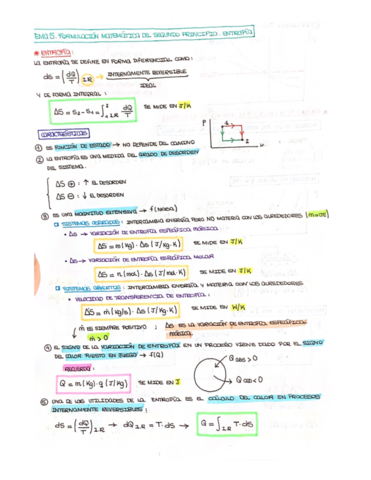 EMA 5. FORMULACIÓN MATEMÁTICA DEL SEGUNDO PRINCIPIO. ENTROPÍA
* ENTROPÍA:
LA ENTROPÍA SE DEFINE EN FORMA DIFERENCIAL COMO:
dS = (dQ/T)I.R → INTERNAMENTE REVERSIBLE
IDEAL
Y DE FORMA INTEGRAL:
ΔS = S2 - S1 = ∫₁² I.R dQ/T SE MIDE EN J/K
CARACTERÍSTICAS
① ES FUNCIÓN DE ESTADO → NO DEPENDE DEL CAMINO
P
1
2
V
② LA ENTROPÍA ES UNA MEDIDA DEL GRADO DE DESORDEN
DEL SISTEMA.
ΔS ⊕ : ↑ EL DESORDEN
ΔS ⊖ : ↓ EL DESORDEN
③ ES UNA MAGNITUD EXTENSIVA → f(MASA)
a) SISTEMAS CERRADOS: INTERCAMBIA ENERGÍA PERO NO MATERIA CON LOS ALREDEDORES
• Δs → VARIACIÓN DE ENTROPÍA ESPECÍFICA MÁSICA
ΔS = m(kg) · Δs (J/kg·K) SE MIDE EN J/K
• Δs → VARIACIÓN DE ENTROPÍA ESPECÍFICA MOLAR
ΔS = n(mol) · Δs (J/mol·K) SE MIDE EN J/K
b) SISTEMAS ABIERTOS: INTERCAMBIA ENERGÍA Y MATERIA CON LOS ALREDEDORES
• VELOCIDAD DE TRANSFERENCIA DE ENTROPÍA:
ΔṠ = ṁ (kg/s) · Δs (J/kg·K) SE MIDE EN W/K
ṁ ES SIEMPRE POSITIVO ; Δs ES LA VARIACIÓN DE ENTROPÍA ESPECÍFICA
ṁ > 0 MÁSICA
④ EL SIGNO DE LA VARIACIÓN DE ENTROPÍA EN UN PROCESO VIENE DADO POR EL SIGNO
DEL CALOR PUESTO EN JUEGO → f(Q)
Q ABS > 0
RECUERDA:
Q = m (kg) · q (J/kg) SE MIDE EN J
Q CED < 0
⑤ UNA DE LAS UTILIDADES DE LA ENTROPÍA ES EL CÁLCULO DEL CALOR EN PROCESOS
INTERNAMENTE REVERSIBLES:
dS = (dQ/T)I.R → dQ I.R = T · dS → Q = ∫I.R T · dS